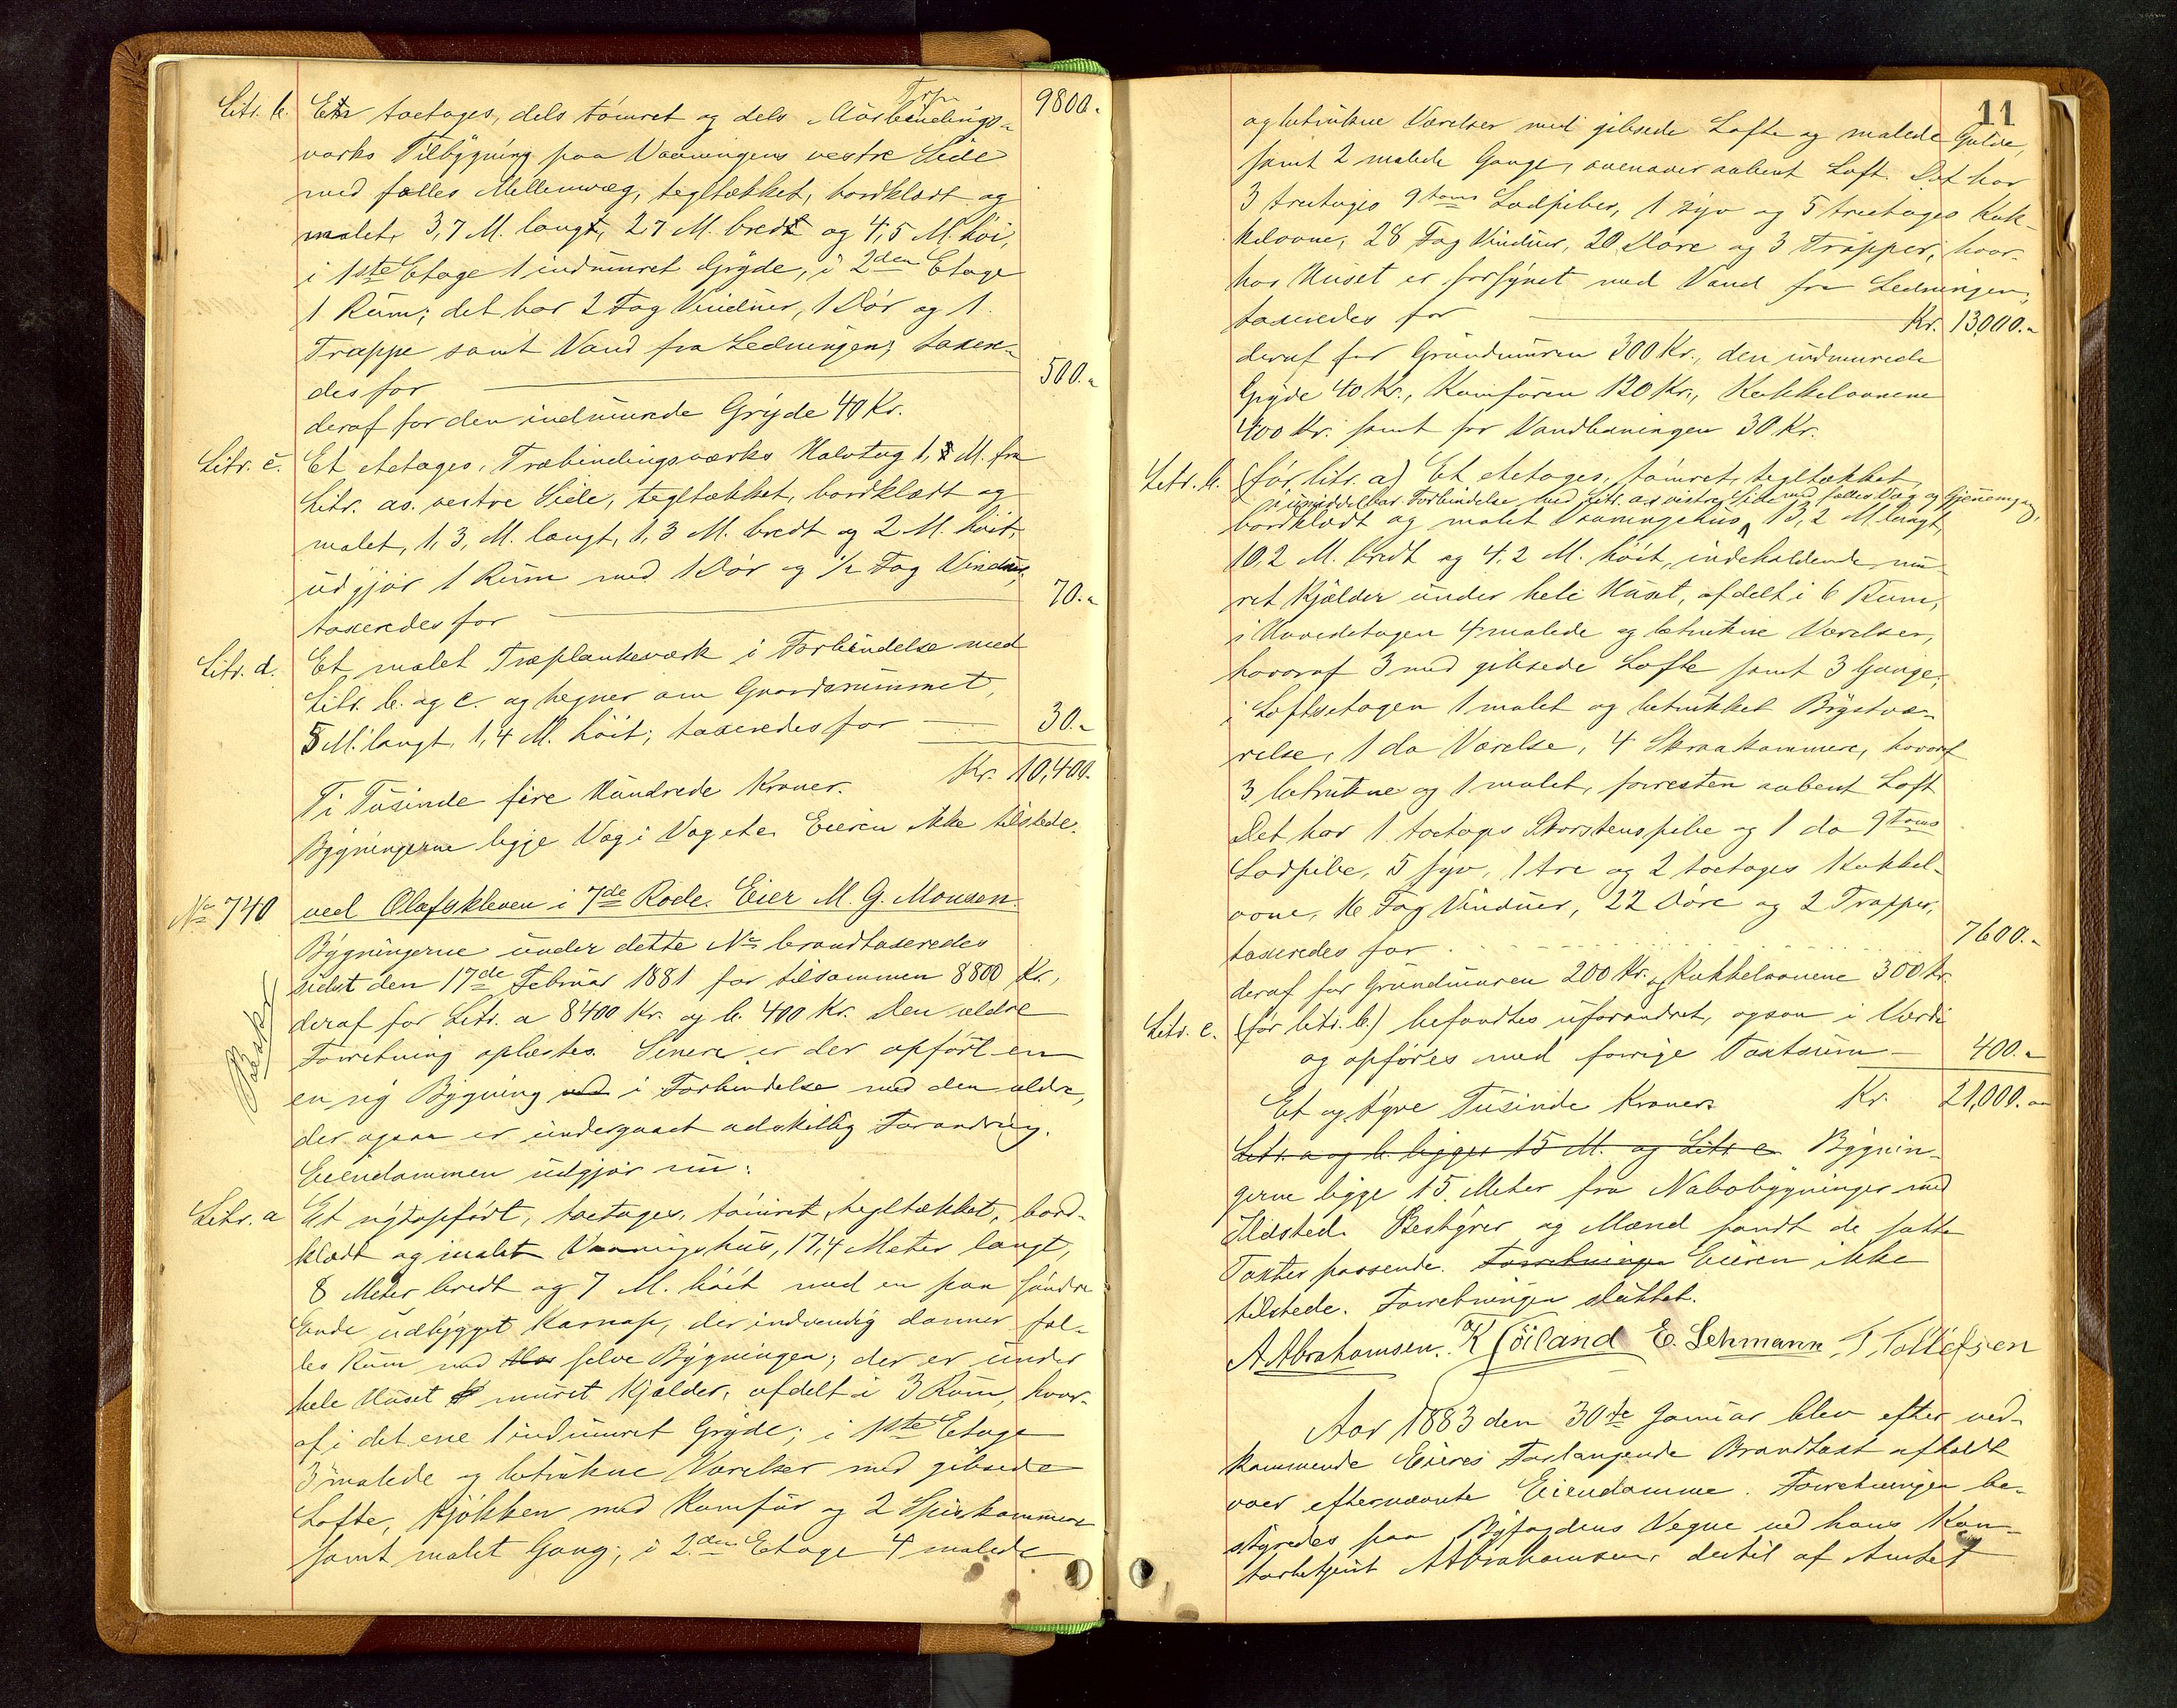 9800.-
Litr. b. En toetages, dels tømret og dels Træ bindings-
værks Tilbygning paa Vaaningens vestre Side
med fælles Mellemvæg, tegltækket, bordklædt og
malet, 3,7 M. langt, 2,7 M. bredt og 4,5 M. høi,
i 1ste Etage 1 indmuret Gryde, i 2den Etage
1 Rum; det har 2 Fag Vinduer, 1 Dør og 1
Trappe samt Vand fra Ledningen; taxere-
des for 500.-
deraf for den indmurede Gryde 40 Kr.
Litr. c. Et etetages, Træbindingsværks Halvtag 1, M. fra
Litr. as. vestre Side, tegltækket, bordklædt og
malet, 1,3, M. langt, 1,3 M. bredt og 2 M. høit,
udgjør 1 Rum med 1 Dør og 1/2 Fag Vindue,
taxeredes for 70.-
Litr. d. Et malet Træplankeværk i Forbindelse med
Litr. b. og c. og hegner om Gaardsrummet,
5 M. langt, 1,4 M. høit; taxeredes for 30.-
Kr. 10,400.-
Ti Tusinde fire Hundrede Kroner.
Bygningerne ligge Væg i Væg etc. Eieren ikke tilstede.
No 740 ved Olafskleven i 7de Rode. Eier M. G. Monsen.
Bygningerne under dette No brandtaxeredes
sidst den 17de Februar 1881 for tilsammen 8800 Kr.,
deraf for Litr. a 8400 Kr. og b. 400 Kr. Den ældre
Forretning oplæstes. Senere er der opført en
en ny Bygning ved i Forbindelse med den ældre,
der ogsaa er undergaaet adskillig Forandring.
Eiendommen udgjør nu:
Litr. a Et nyopført, toetages, tømret, tegltækket, bord-
klædt og malet Vaaningshus, 17,4 Meter langt,
8 Meter bredt og 7 M. høit med en paa søndre
Ende udbygget Karnap, der indvendig danner fæl-
les Rum med selve Bygningen; der er under
hele Huset muret Kjælder, afdelt i 3 Rum, hvor-
af i det ene 1 indmuret Gryde; i 1ste Etage
3 malede og betrukne Værelser med gibsede
Lofte, Kjøkken med Komfur og 2 Spiskammere
samt malet Gang; i 2den Etage 4 malede
11
og betrukne Værelser med gibsede Lofte og malede Gulve,
samt 2 malede Gange, ovenover aabent Loft. Det har
3 treetages 9 toms Lodpiber, 1 syv og 5 treetages Kak-
kelovne, 28 Fag Vinduer, 20 Døre og 3 Trapper, hvor-
hos Huset er forsynet med Vand fra Ledningen,
taxeredes for Kr. 13,000.-
deraf for Grundmuren 300 Kr., den indmurede
Gryde 40 Kr., Komfuren 120 Kr., Kakkelovnene
400 Kr. samt for Vandledningen 30 Kr.
Litr. b. (før litr. a) Et etetages, tømret, tegltækket,
i umiddelbar Forbindelse med Litr. as vestre Side med fælles Væg og Gjennemgang,
bordklædt og malet Vaaningshus, 13,2 M. langt,
10,2 M. bredt og 4,2 M. høit, indeholdende mu-
ret Kjælder under hele Huset, afdelt i 6 Rum,
i Hovedetagen 4 malede og betrukne Værelser,
hvoraf 3 med gibsede Lofte samt 3 Gange,
i Loftsetagen 1 malet og betrukket Brystvæ-
relse, 1 do Værelse, 4 Skraakammere, hvoraf
3 betrukne og 1 malet, forresten aabent Loft
Det har 1 toetages Skorstenspibe og 1 do 9 toms
Lodpibe, 5 syv, 1 tre og 2 toetages Kakkel-
ovne, 16 Fag Vinduer, 22 Døre og 2 Trapper,
taxeredes for 7600.-
deraf for Grundmuren 200 Kr. og Kakkelovnene 300 Kr.
Litr. c. (før litr. b.) befandtes uforandret, ogsaa i Værdi
og opføres med forrige Taxtsum 400.-
Et og tyve Tusinde Kroner. Kr. 21,000.-
Litr. a og b. ligger 15 M. og Litr c. Bygnin-
gerne ligge 15. Meter fra Nabobygninger med
Ildsted. Bestyrer og Mænd fandt de satte
Taxter passende. Forretningen Eieren ikke
tilstede. Forretningen sluttet.
A Abrahamsen. K Joiland E. Lehmann T. Tollefsen
Aar 1883 den 30te Januar blev efter ved-
kommende Eieres Forlangende Brandtaxt afholdt
over efternævnte Eiendomme. Forretningen be-
styredes paa Byfogdens Vegne ved hans Kon-
torbetjent A Abrahamsen, dertil af Amtet